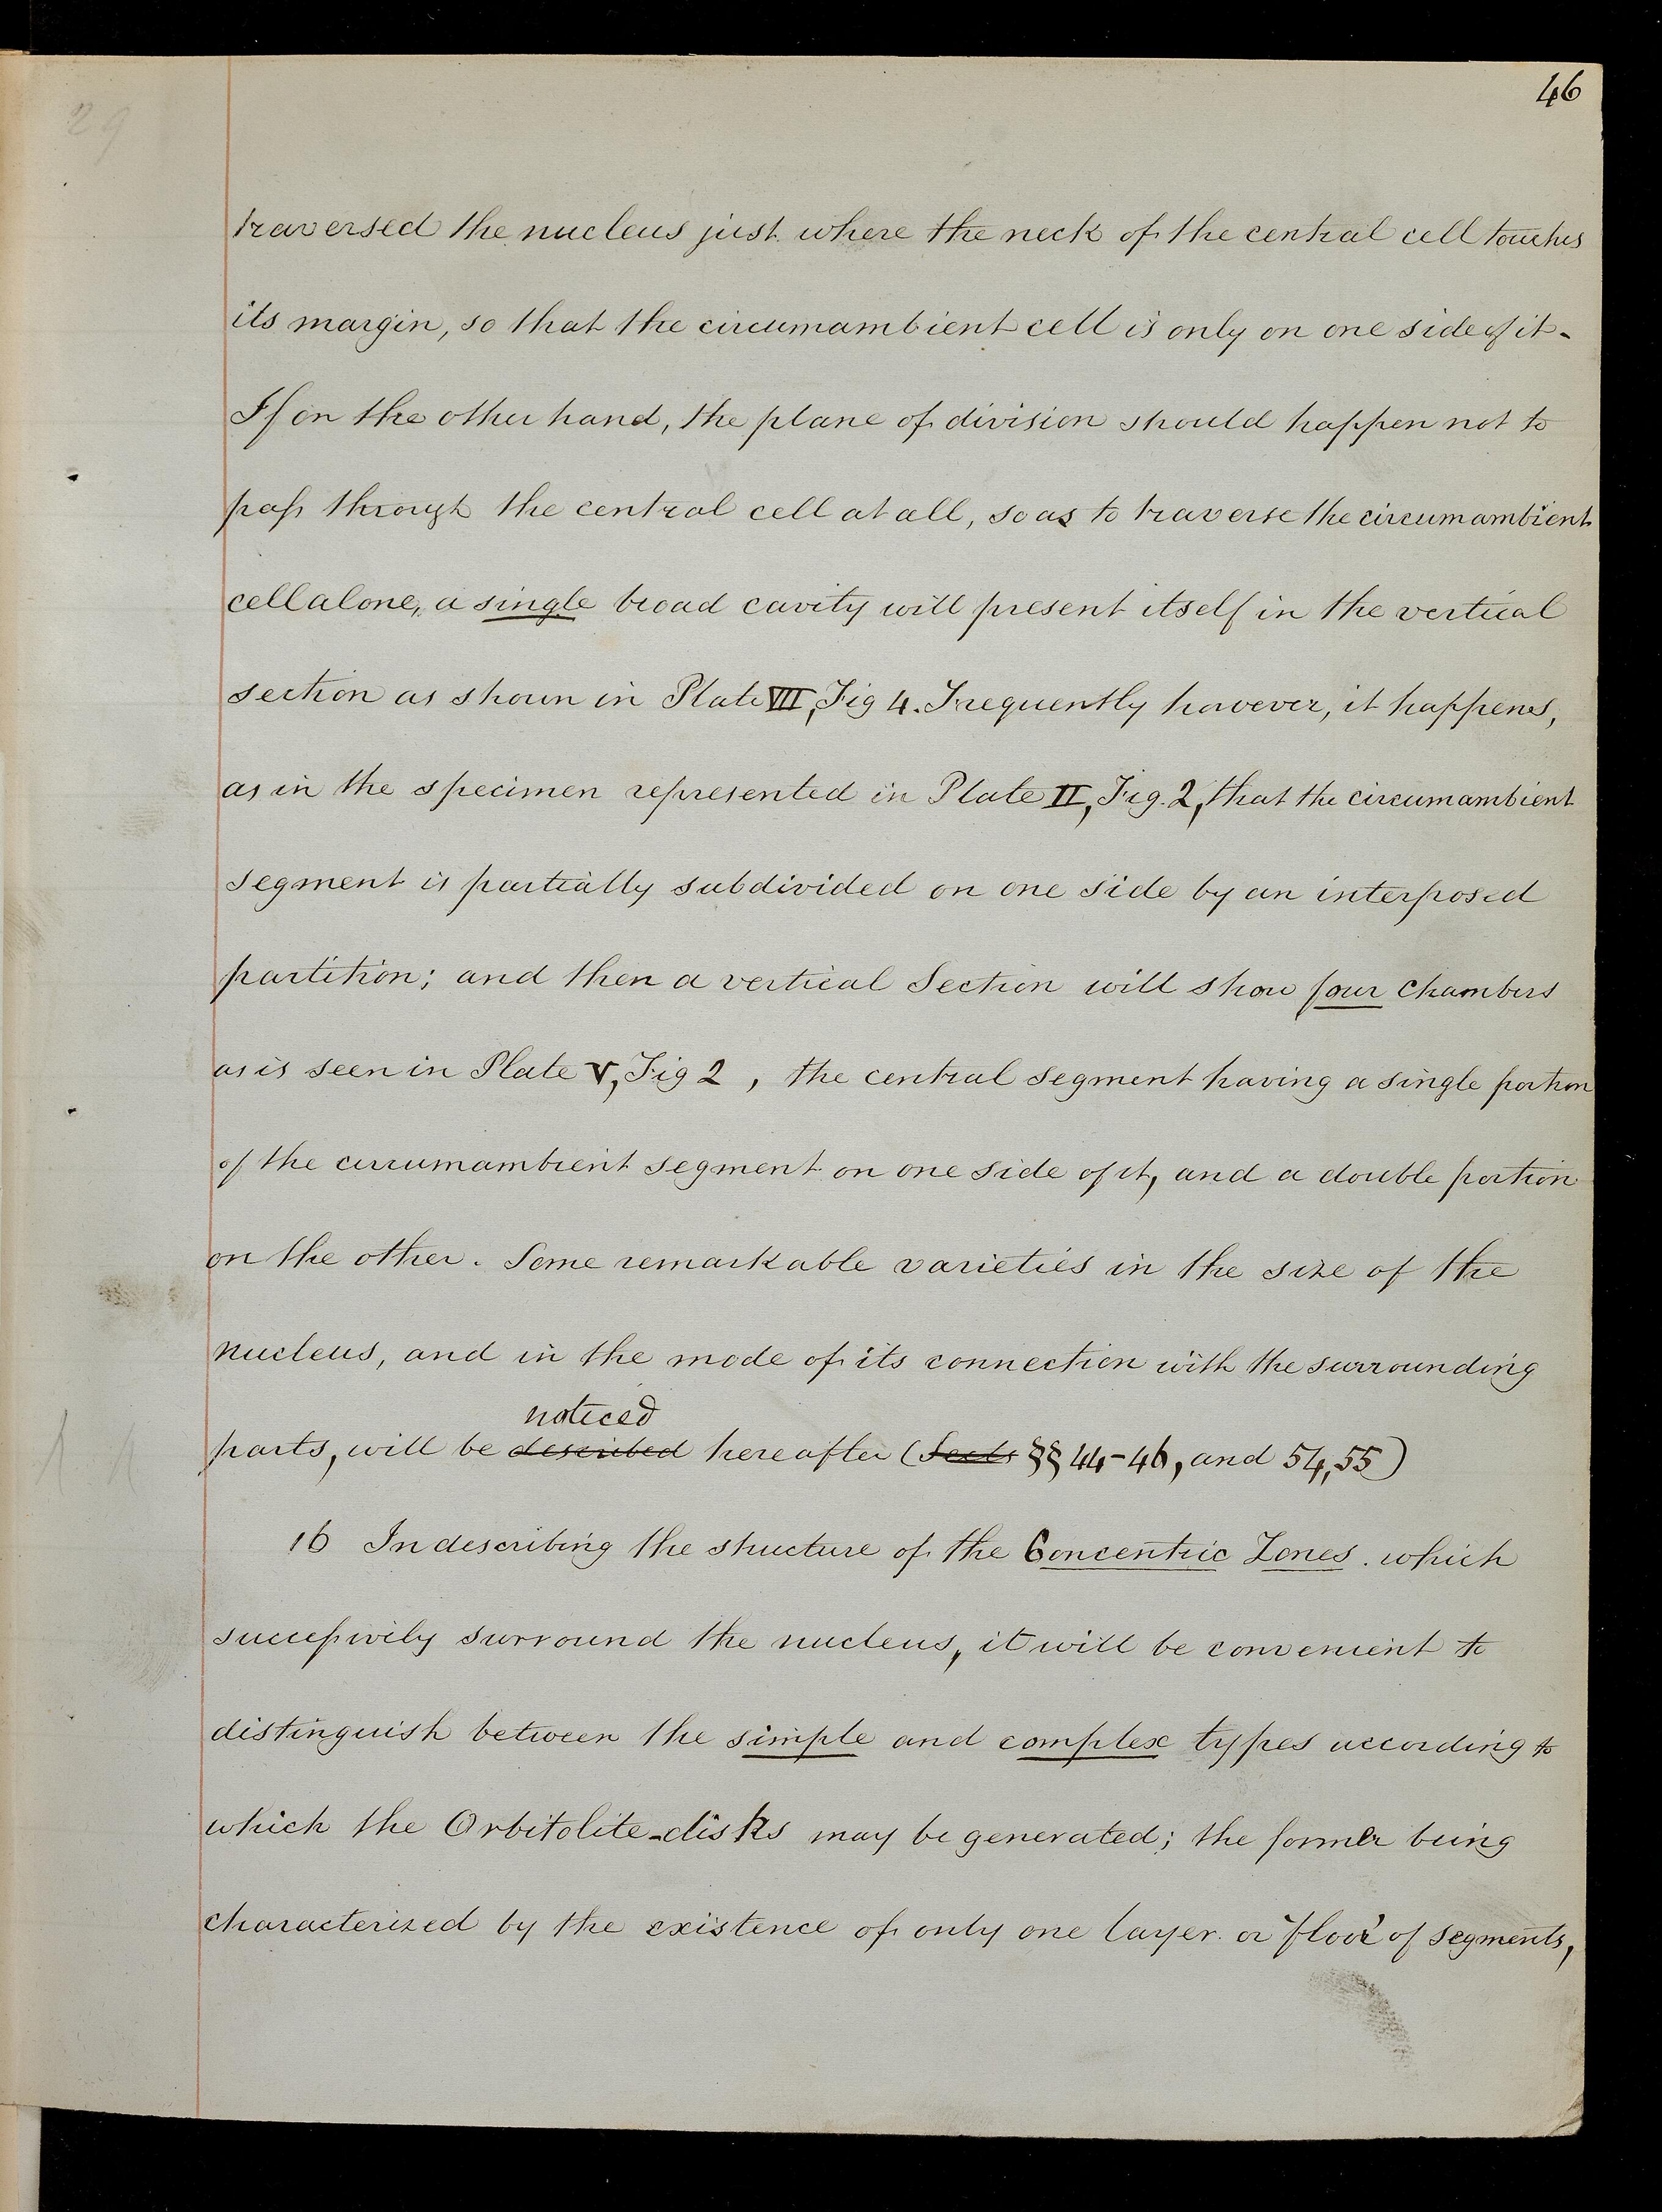 46
29
traversed the nucleus just where the neck of the central cell touches
its margin, so that the circumambient cell is only on one side of it -
If on the other hand, the plane of division should happen not to
pass through the central cell at all, so as to traverse the circumambient
cell alone, a single broad cavity will present itself in the vertical
section as shown in Plate VII, Fig 4. Frequently however, it happens,
as in the specimen represented in Plate II, Fig. 2, that the circumambient
segment is partially subdivided on one side by an interposed
partition; and then a vertical Section will show four chambers
as is seen in Plate V, Fig 2 , the central segment having a single portion
of the circumambient segment on one side of it, and a double portion
on the other. Some remarkable varieties in the size of the
nucleus, and in the mode of its connection with the surrounding
noticed
parts, will be described hereafter (Sects §§ 44-46, and 54, 55)
16 In describing the structure of the Concentric Zones. which
successively surround the nucleus, it will be convenient to
distinguish between the simple and complex types according to
which the Orbitolite-disks may be generated; the former being
characterized by the existence of only one layer or "floor" of segments,